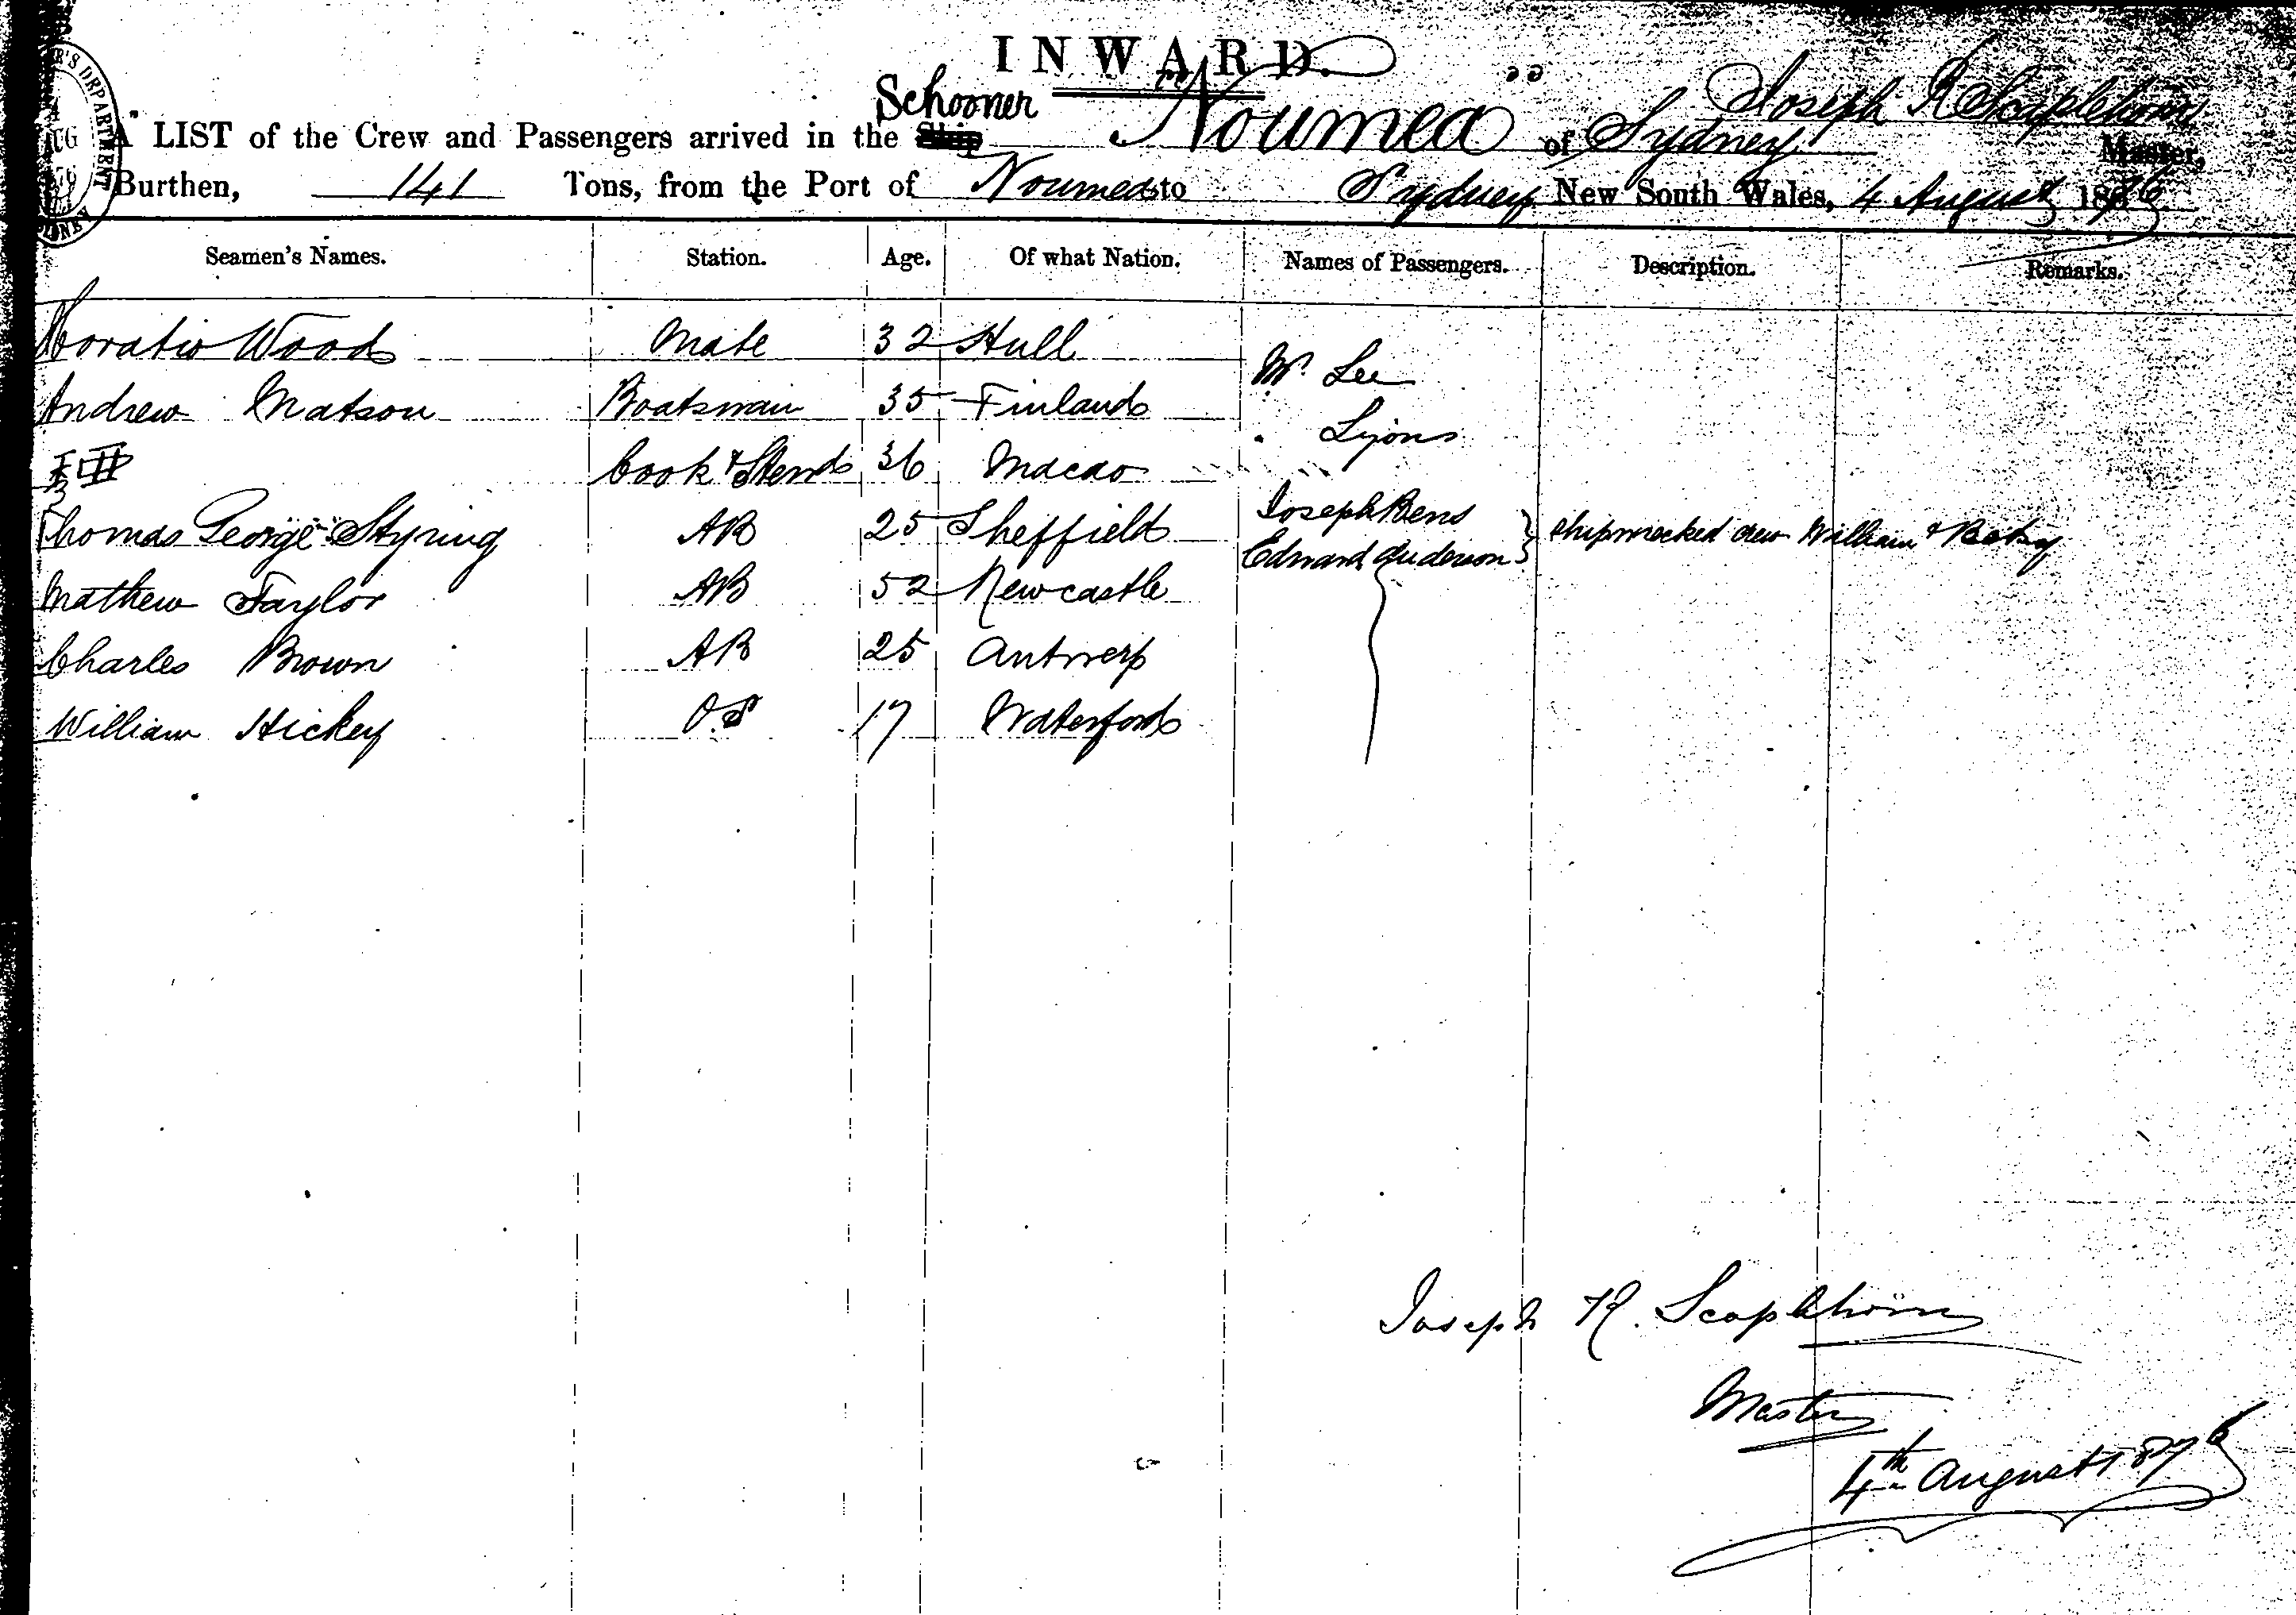 INWARD.
Schooner
A LIST of the Crew and Passengers arrived in the Ship "Noumea" of Sydney Joseph R Scaplehorn Master,
Burthen, 141 Tons, from the Port of Noumea to Sydney New South Wales, 4 August 1876
Seamen's Names. Station. Age. Of what Nation. Names of Passengers. Description. Remarks.
Horatio Wood Mate 32 Hull
Mr. Lee
Andrew Matson Boatswain 35 Finland
Lyons
Cook & Stewd 36 Macao
Joseph Bens
Thomas George Styring AB 25 Sheffield
Edward Anderson } Shipwrecked crew William & Betsy
Mathew Taylor AB 52 Newcastle
Charles Brown AB 25 Antwerp
William Hickey O.S 17 Waterford
Joseph R. Scaplehorn
Master
4th August 1876